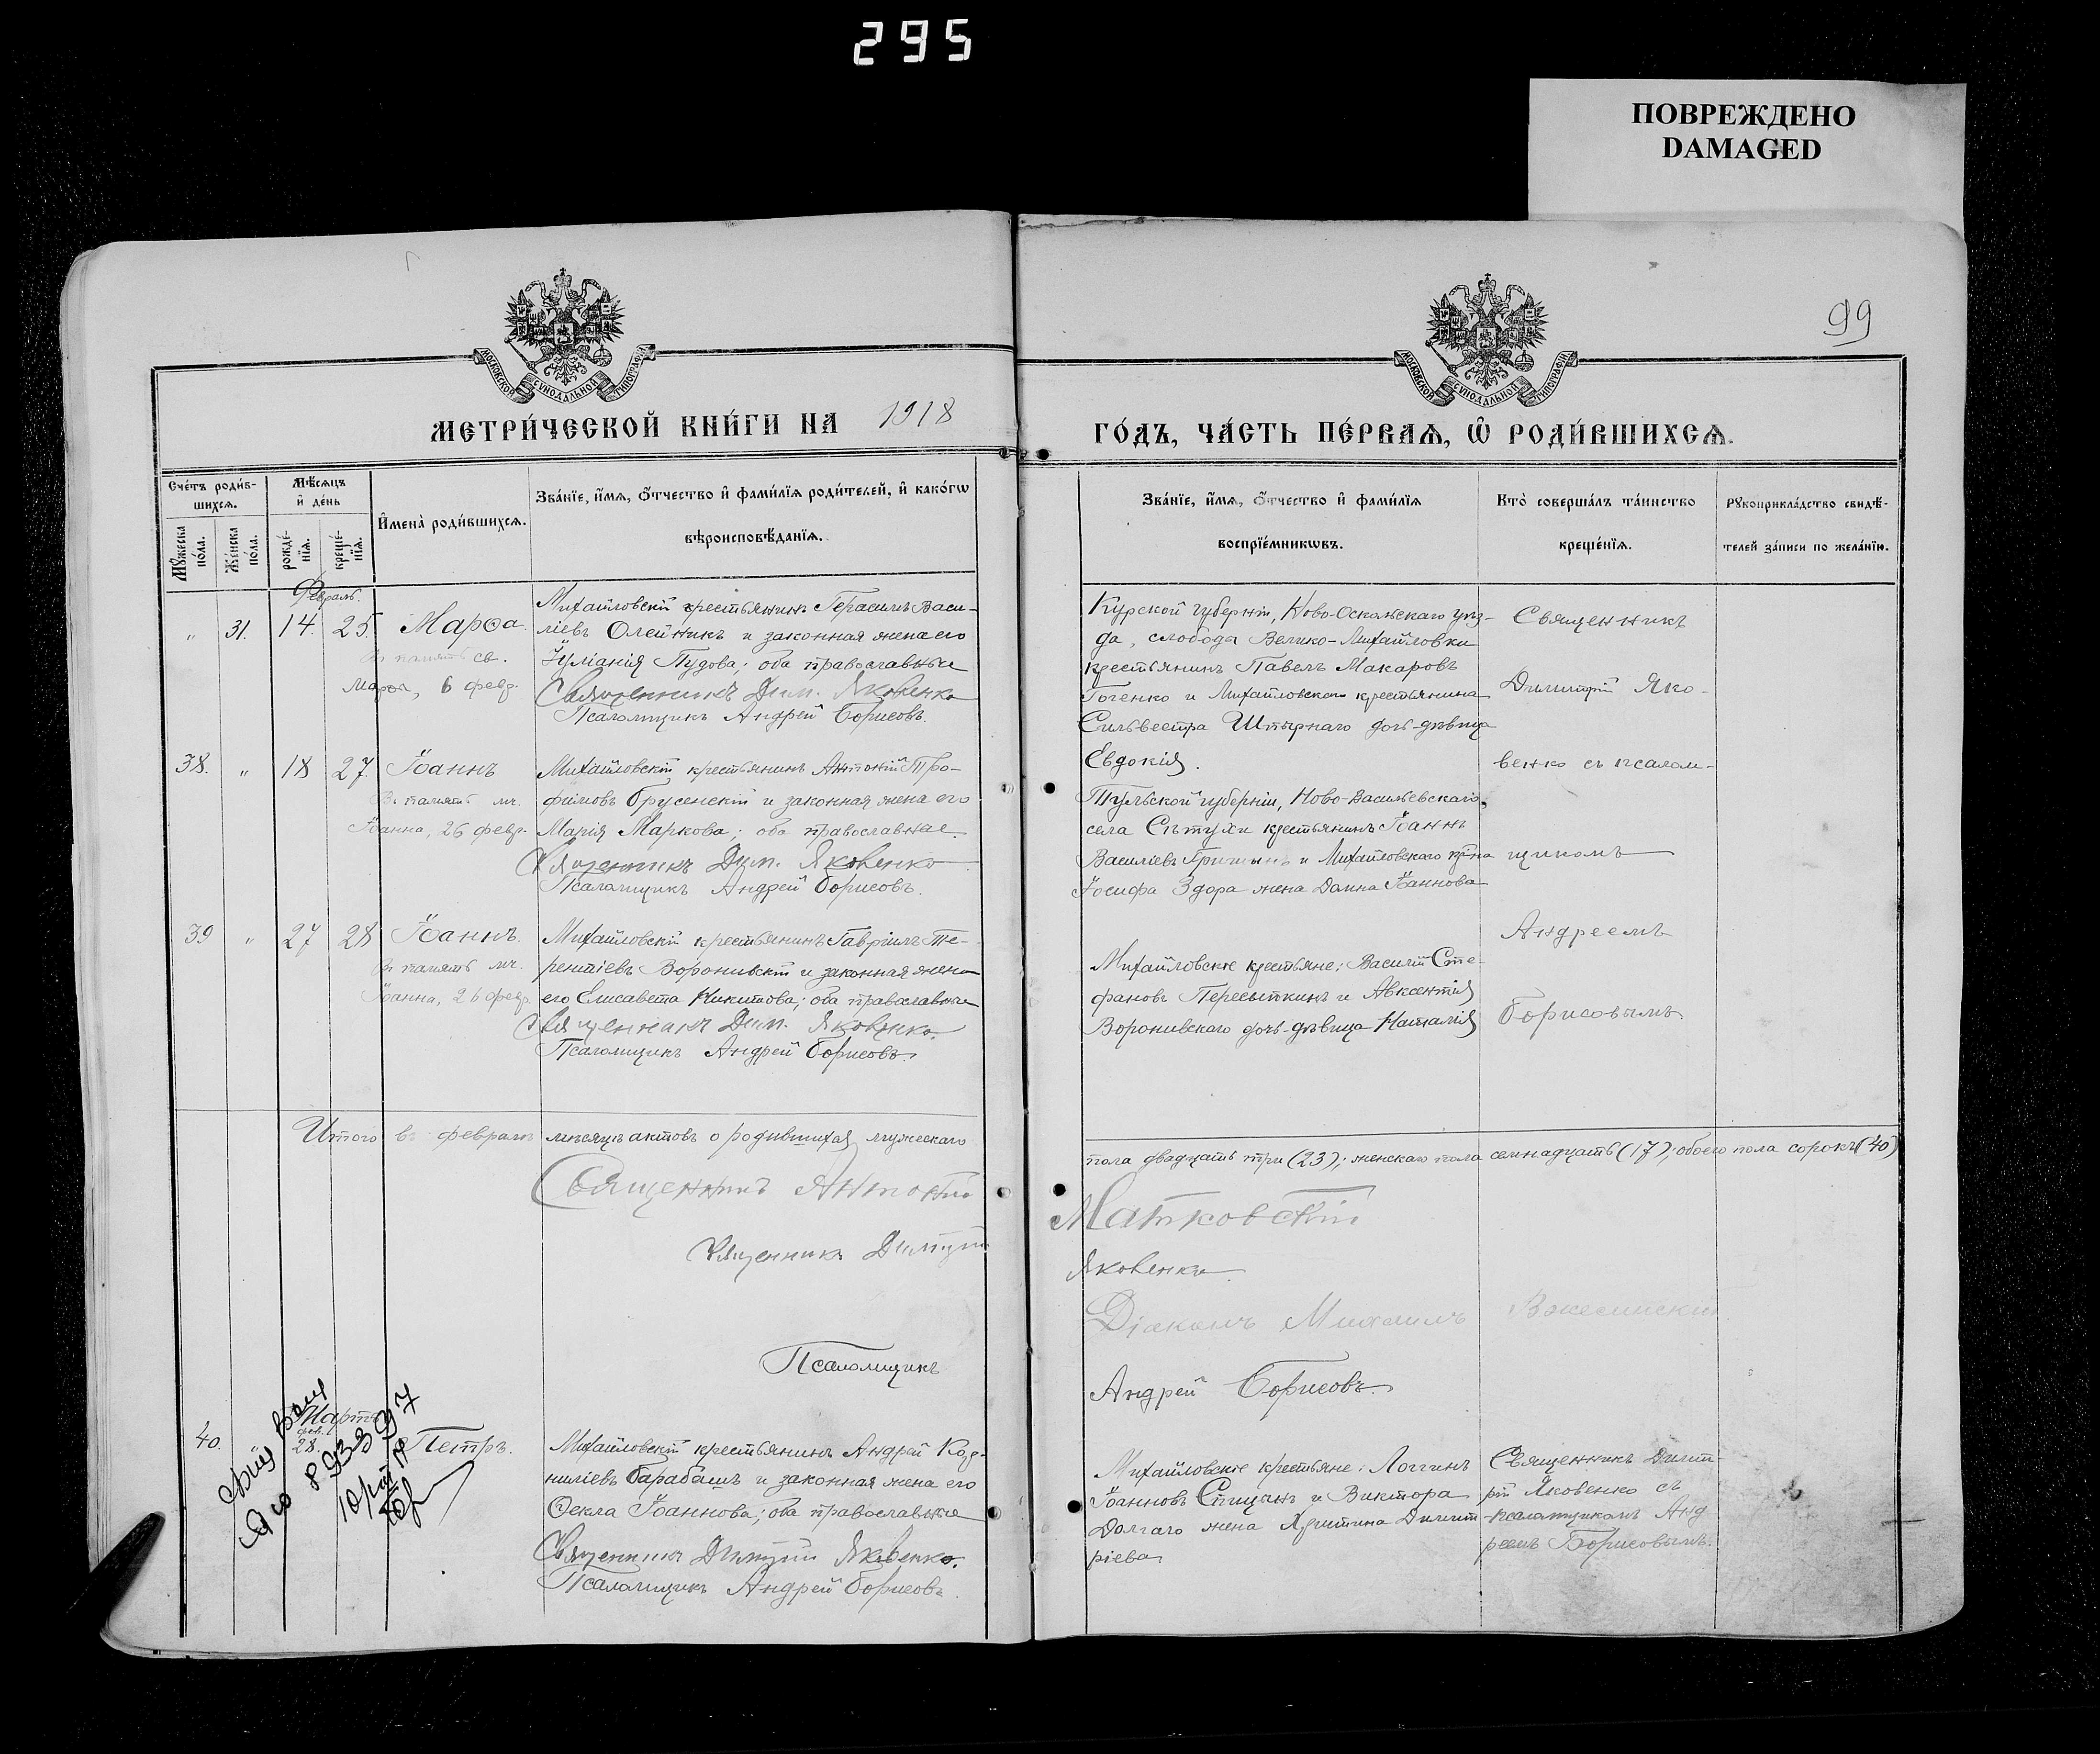 295
ПОВРЕЖДЕНО
DAMAGED
99
МОСКОВСКОЙ СѴНОДАЛЬНОЙ ТИПОГРАФІИ
МОСКОВСКОЙ СѴНОДАЛЬНОЙ ТИПОГРАФІИ
МЕТРИ́ЧЕСКОЙ КНИ́ГИ НА 1918
ГО́ДЪ, ЧА́СТЬ ПЕ́РВАѦ, Ѡ҆ РОДИ́ВШИХСѦ.
Сче́тъ роди́в-
шихсѧ.
Мꙋ́жеска по́ла.
Же́нска по́ла.
Мѣ́сѧцъ
и҆ де́нь
рожде́-
нїѧ.
креще́-
нїѧ.
И҆мена̀ роди́вшихсѧ.
Зва́нїе, и҆́мѧ, ѻ҆́тчество и҆ фами́лїѧ роди́телей, и҆ како́гѡ
вѣроисповѣ́данїѧ.
Зва́нїе, и҆́мѧ, ѻ҆́тчество и҆ фами́лїѧ
воспрїе́мникѡвъ.
Кто̀ соверша́лъ та́инство
креще́нїѧ.
Рꙋкоприкла́дство свидѣ́-
телей за́писи по жела́нїю.
Февраль.
" 31. 14. 25. Марѳа.
въ память св.
Марѳы, 6 февр.
Михайловскій крестьянинъ Герасимъ Васи-
ліевъ Олейникъ и законная жена его
Іуліанія Пудова; оба православные
Священникъ Дим. Яковенко
Псаломщикъ Андрей Борисовъ.
Курской губерніи, Ново-Оскольскаго уѣз-
да, слобода Велико-Михайловки
крестьянинъ Павелъ Макаровъ
Гоченко и Михайловскаго крестьянина
Сильвестра Штырнаго дочь-дѣвица
Евдокія.
Священникъ
Димитрій Яко-
венко съ псалом-
щикомъ
Андреемъ
Борисовымъ.
38. " 18 27. Іоаннъ
въ память мч.
Іоанна, 26 февр.
Михайловскій крестьянинъ Антоній Тро-
фимовъ Брусенскій и законная жена его
Марія Маркова; оба православные.
Священникъ Дим. Яковенко
Псаломщикъ Андрей Борисовъ.
Тульской губерніи, Ново-Васильевскаго,
села Сѣтухи крестьянинъ Іоаннъ
Василіевъ Гришинъ и Михайловскаго кр-на
Іосифа Здора жена Домна Іоаннова
39 " 27 28 Іоаннъ.
въ память мч.
Іоанна, 26 февр.
Михайловскій крестьянинъ Гавріилъ Те-
рентіевъ Воронивскій и законная жена
его Елисавета Никитова; оба православные
Священникъ Дим. Яковенко.
Псаломщикъ Андрей Борисовъ.
Михайловскіе крестьяне: Василій Сте-
фановъ Пересыпкинъ и Авксентія
Воронивскаго дочь-дѣвица Наталія
Итого въ февралѣ мѣсяцѣ актовъ о родившихся мужескаго
пола двадцать три (23); женскаго пола семнадцать (17); обоего пола сорокъ (40)
Священникъ Антоній
Матковскій
Священникъ Димитрій
Яковенко.
Діаконъ Михаилъ
Псаломщикъ
Андрей Борисовъ.
Мартъ
фев.
40. " 28. Петръ.
Михайловскій крестьянинъ Андрей Кор-
ниліевъ Барабашъ и законная жена его
Ѳекла Іоаннова; оба православные
Священникъ Димитрій Яковенко.
Псаломщикъ Андрей Борисовъ.
Михайловскіе крестьяне: Логгинъ
Іоанновъ Спицынъ и Виктора
Долгаго жена Христина Димит-
ріева
Священникъ Димит-
рій Яковенко съ
псаломщикомъ Анд-
реемъ Борисовымъ.